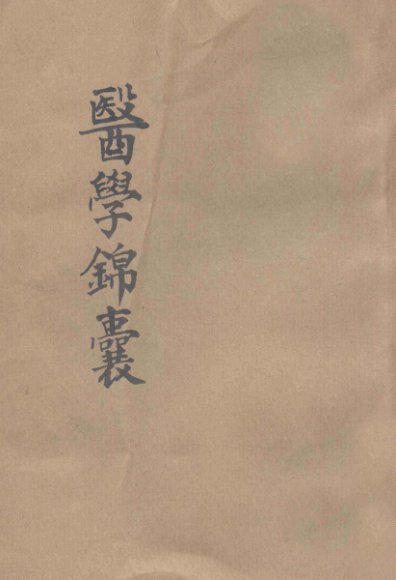 醫學錦囊